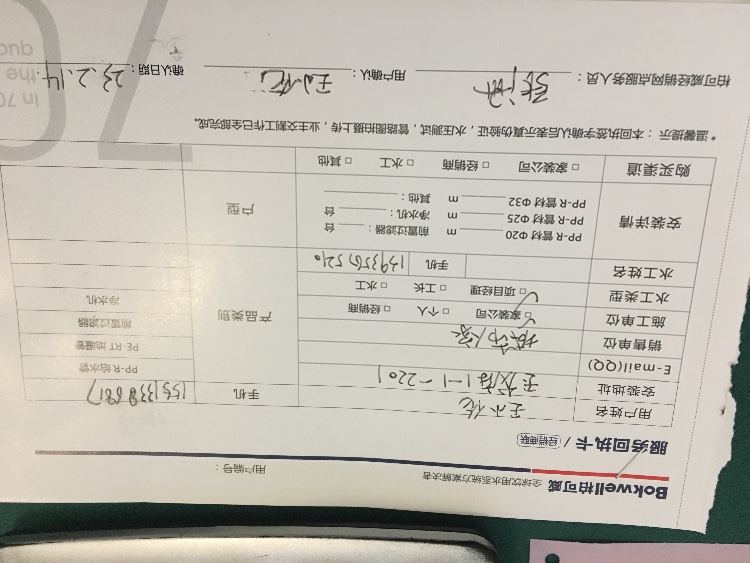 Bokwell柏可威 全球饮用水系统方案解决者 用户编号：
服务回执卡 / 经销商联
用户姓名 王小化 手机 15513386817
安装地址 1-1-2201
E-mail(QQ)
销售单位
施工单位 ☑ 家装公司 □ 个人 □ 经销商
水工类型 ☑ 项目经理 □ 工长 □ 水工
水工姓名 手机 13935675210
产品类别 PP-R 给水管
PE-RT 地暖管
前置过滤器
净水机
安装详情 PP-R 管材 Φ20 m 前置过滤器： 台
PP-R 管材 Φ25 m 净水机： 台
PP-R 管材 Φ32 m 其他：
户型
购买渠道 □ 家装公司 □ 经销商 □ 水工 □ 其他
*温馨提示：本回执签字确认后表示真伪验证，水压测试，管路图拍摄上传，业主交割工作已全部完成。
柏可威经销网点服务人员： 用户确认： 确认日期：23.2.14.
70
In 70
the
quo